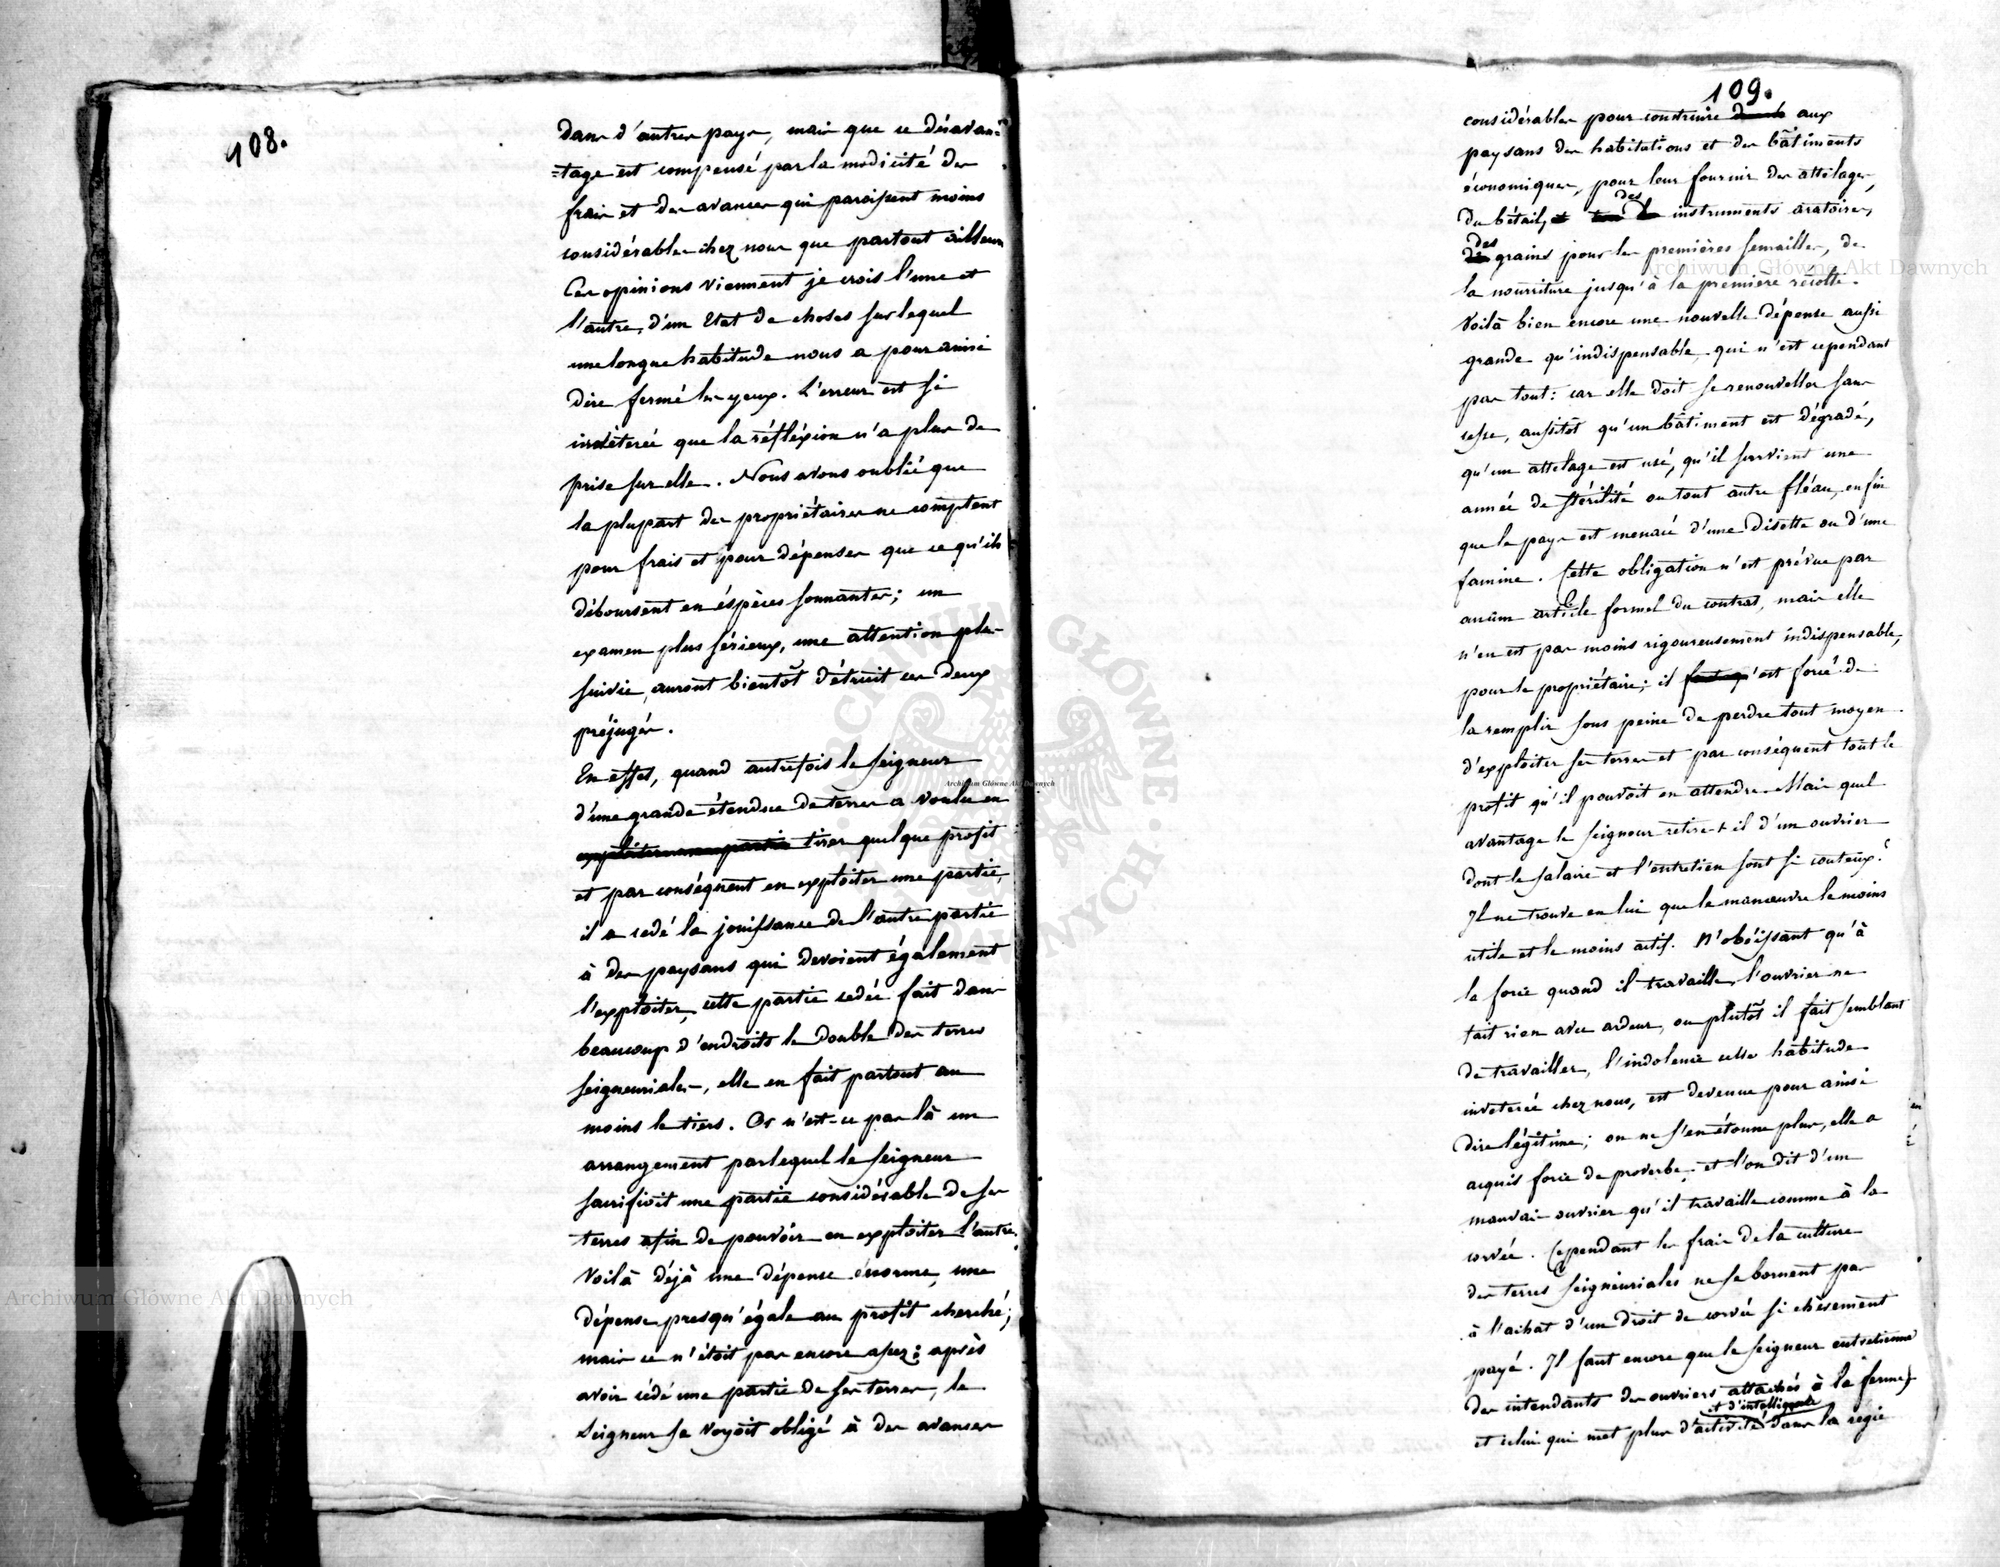 108.
dans d'autres pays, mais que ce désavan=
=tage est compensé par la modicité des
frais et des avances qui paroissent moins
considérables chez nous que partout ailleurs
Ces opinions viennent je crois l'une et
l'autre, d'un Etat de choses sur lequel
une longue habitude nous a pour ainsi
dire fermé les yeux. L'erreur est si
invéterée que la réfléxion n'a plus de
prise sur elle. Nous avons oublié que
la plupart des propriétaires ne comptent
pour frais et pour dépenses que ce qu'ils
déboursent en éspèces sonnantes; un
examen plus sérieux, une attention plus
suivie, auront bientôt détruit ces deux
préjugés.
En effet, quand autrefois le seigneur
d'une grande étendue de terres a voulu en
exploiter une partie tirer quelque profit
et par conséquent en exploiter une partie,
il a cedé la jouissance de l'autre partie
à des paysans qui devoient également
l'exploiter, cette partie cedée fait dans
beaucoup d'endroits le double des terres
seigneuriales, elle en fait partout au
moins le tiers. Or n'est-ce pas là un
arrangement par lequel le seigneur
sacrifioit une partie considérable de ses
terres afin de pouvoir en exploiter l'autre.
Voilà déjà une dépense énorme, une
dépense presqu'égale au profit cherché;
mais ce n'étoit pas encore assez: après
avoir cédé une partie de ses terres, le
Seigneur se voyoit obligé à des avances
109.
considérables pour construire aux
paysans des habitations et des bâtiments
économiques, pour leur fournir des attelages,
du bétail, des instruments aratoires,
des grains pour les premières semailles, de
la nourriture jusqu'à la première récolte.
Voilà bien encore une nouvelle dépense aussi
grande qu'indispensable, qui n'est cependant
pas tout: car elle doit se renouveller sans
cesse, aussitôt qu'un bâtiment est dégradé,
qu'un attelage est usé, qu'il survient une
année de stérilité ou tout autre fléau, enfin
que le pays est menacé d'une disette ou d'une
famine. Cette obligation n'est prévue par
aucun article formel du contrat, mais elle
n'en est pas moins rigoureusement indispensable,
pour le propriétaire; il est forcé de
la remplir sous peine de perdre tout moyen
d'exploiter ses terres et par conséquent tout le
profit qu'il pouvoit en attendre. Mais quel
avantage le seigneur retire-t-il d'un ouvrier
dont le salaire et l'entretien sont si couteux?
Il ne trouve en lui que le manœuvre le moins
utile et le moins actif. N'obéissant qu'à
la force quand il travaille, l'ouvrier ne
fait rien avec ardeur, ou plutôt il fait semblant
de travailler, l'indolence cette habitude
inveterée chez nous, est devenue pour ainsi
dire légitime; on ne s'en étonne plus, elle a
acquis force de proverbe, et l'on dit d'un
mauvais ouvrier qu'il travaille comme à la
corvée. Cependant les frais de la culture
des terres seigneuriales ne se bornent pas
à l'achat d'un droit de corvée si chèrement
payé. Il faut encore que le seigneur entretienne
des intendants des ouvriers attachés à la ferme,
et d'intelligence
et celui qui met plus d'activité dans la régie
Archiwum Główne Akt Dawnych
Archiwum Główne Akt Dawnych
Archiwum Główne Akt Dawnych
ARCHIWUM GŁÓWNE AKT DAWNYCH